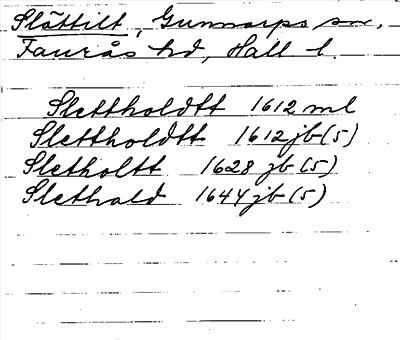 Slättilt, Gunnarps sn,
Faurås hd, Hall l.
Slettholdtt 1612 ml
Slettholdtt 1612 jb (5)
Sletholtt 1628 jb (5)
Slethald 1644 jb (5)